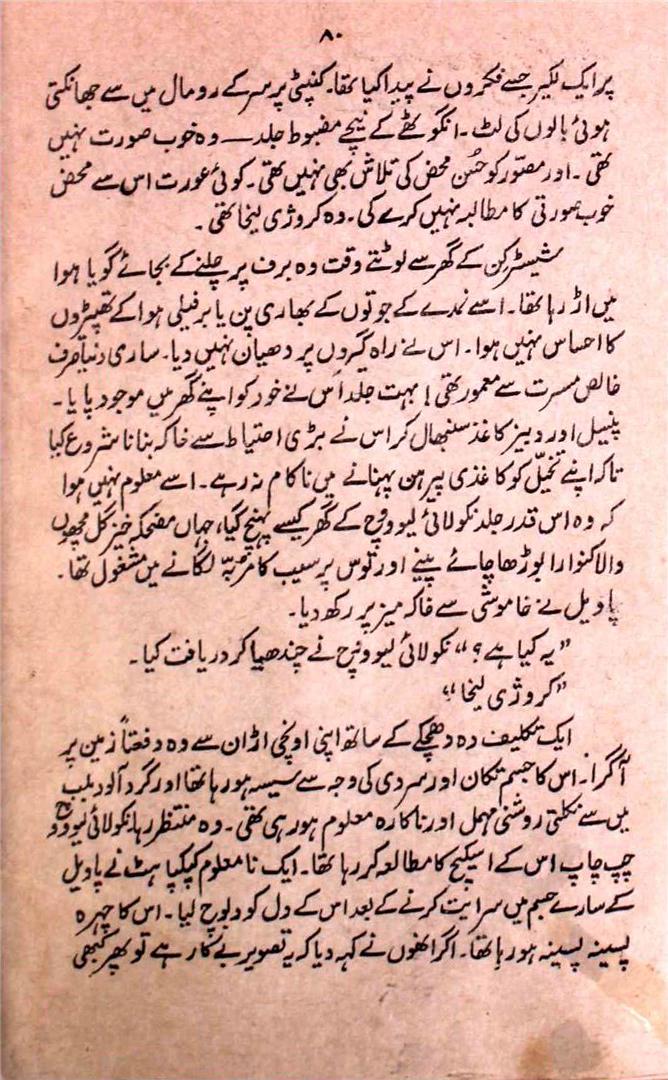 ۸۰
پر ایک لکیر جسے فکروں نے پیدا کیا تھا۔ کنپٹی پر سر کے رومال میں سے جھانکتی
ہوئی بالوں کی لٹ۔ انگوٹھے کے نیچے مضبوط جلد ــــ وہ خوب صورت نہیں
تھی۔ اور مصوّر کو حُسن محض کی تلاش بھی نہیں تھی۔ کوئی عورت اس سے محض
خوب صورتی کا مطالبہ نہیں کرے گی۔ وہ کروژی لنخا تھی۔
شیسٹرکن کے گھر سے لوٹتے وقت وہ برف پر چلنے کے بجائے گویا ہوا
میں اڑ رہا تھا۔ اسے نمدے کے جوتوں کے بھاری پن یا برفیلی ہوا کے تھپیڑوں
کا احساس نہیں ہوا۔ اس نے راہ گیروں پر دھیان نہیں دیا۔ ساری دنیا صرف
خالص مسرت سے معمور تھی! بہت جلد اُس نے خود کو اپنے گھر میں موجود پایا۔
پنسل اور دبیز کاغذ سنبھال کر اس نے بڑی احتیاط سے خاکہ بنانا شروع کیا
تاکہ اپنے تخیّل کو کاغذی پیرہن پہنانے میں ناکام نہ رہے۔ اسے معلوم نہیں ہوا
کہ وہ اس قدر جلد نکولائی لیوووچ کے گھر کیسے پہنچ گیا، جہاں مضحکہ خیز گل مچھوں
والا کنوارا بوڑھا چائے پینے اور توس پر سیب کا مربہّ لگانے میں مشغول تھا۔
پاویل نے خاموشی سے خاکہ میز پر رکھ دیا۔
”یہ کیا ہے؟“ نکولائی لیوووچ نے چندھیا کر دریافت کیا۔
”کروژی لنخا“؛
ایک تکلیف دہ دھچکے کے ساتھ اپنی اونچی اڑان سے وہ دفعتاً زمین پر
آ گرا۔ اس کا جسم تکان اور سردی کی وجہ سے سیسہ ہو رہا تھا اور گرد آلود بلب
میں سے نکلتی روشنی مہمل اور ناکارہ معلوم ہو رہی تھی۔ وہ منتظر رہا نکولائی لیوووچ
چپ چاپ اس کے اسکیچ کا مطالعہ کر رہا تھا۔ ایک نامعلوم کپکپاہٹ نے پاویل
کے سارے جسم میں سرایت کرنے کے بعد اس کے دل کو دبوچ لیا۔ اس کا چہرہ
پسینہ پسینہ ہو رہا تھا۔ اگر انھوں نے کہہ دیا کہ یہ تصویر بے کار ہے تو پھر کبھی